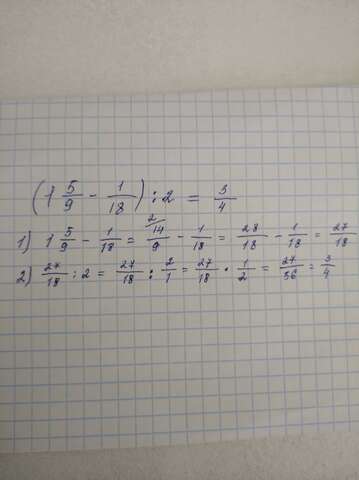 (1 5/9 - 1/18) : 2 = 3/4
1) 1 5/9 - 1/18 = 14/9 2/ - 1/18 = 28/18 - 1/18 = 27/18
2) 27/18 : 2 = 27/18 : 2/1 = 27/18 · 1/2 = 27/36 = 3/4